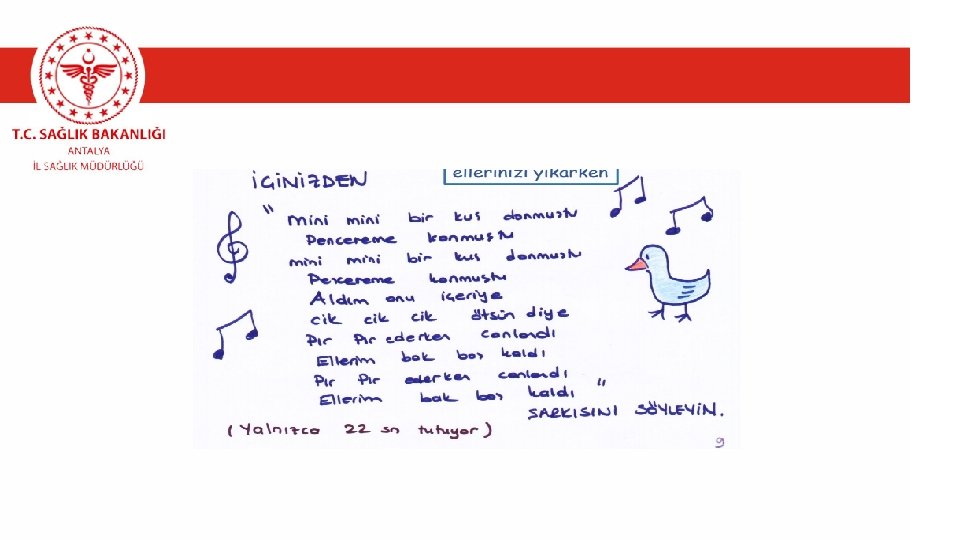 T.C. SAĞLIK BAKANLIĞI
ANTALYA
İL SAĞLIK MÜDÜRLÜĞÜ
ellerinizi yıkarken
İÇİNİZDEN
" mini mini bir kus donmustu
Pencereme konmuştu
mini mini bir kus donmustu
Pencereme konmuştu
Aldım onu içeriye
cik cik cik ötsün diye
Pır Pır ederken canlandı
Ellerim bak boş kaldı
Pır Pır ederken canlandı
Ellerim bak boş kaldı "
ŞARKISINI SÖYLEYİN.
(Yalnızca 22 sn tutuyor)
9